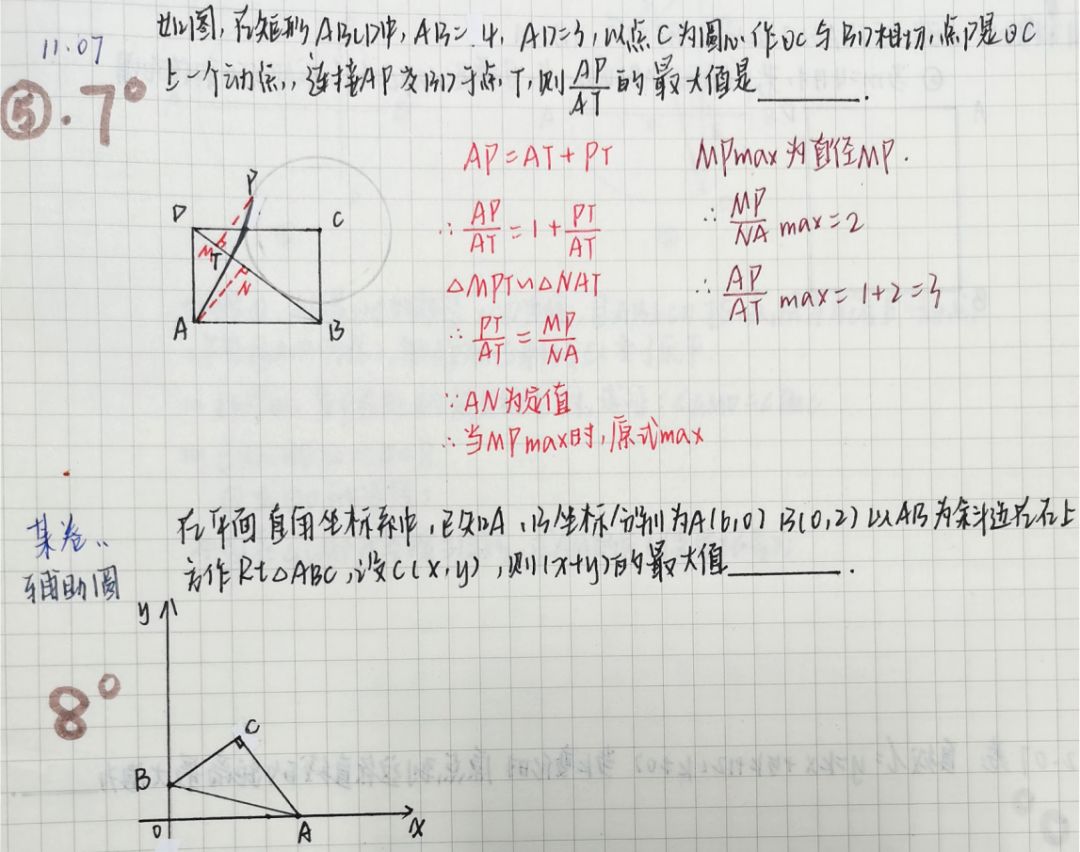 11.07
⑤.7°
如图,在矩形ABCD中,AB=4,AD=3,以点C为圆心作⊙C与BD相切,点P是⊙C
上一个动点,连接AP交BD于点T,则AP/AT的最大值是______.
AP=AT+PT
∴AP/AT=1+PT/AT
△MPT∽△NAT
∴PT/AT=MP/NA
∵AN为定值
∴当MPmax时,原式max
MPmax为直径MP.
∴MP/NA max=2
∴AP/AT max=1+2=3
P
D
C
M
T
N
A
B
某卷..
辅助圆
8°
在平面直角坐标系中,已知A、B坐标分别为A(6,0) B(0,2) 以AB为斜边在右上
方作Rt△ABC,设C(x,y),则(x+y)的最大值______.
y
C
B
O
A
x